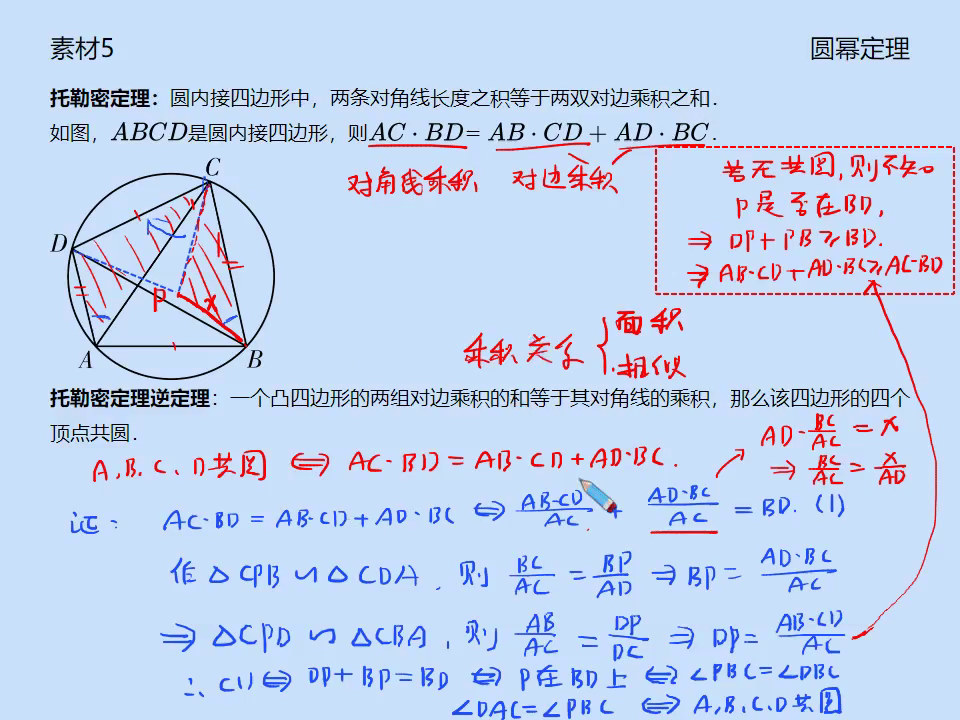 素材5
圆幂定理
托勒密定理：圆内接四边形中，两条对角线长度之积等于两双对边乘积之和．
如图，ABCD是圆内接四边形，则AC·BD=AB·CD+AD·BC．
对角线乘积 对边乘积
若无共圆,则不知
P是否在BD,
⇒ DP+PB⩾BD.
⇒ AB·CD+AD·BC⩾AC·BD
C
D
P
x
A
B
乘积关系 { 面积
相似
托勒密定理逆定理：一个凸四边形的两组对边乘积的和等于其对角线的乘积，那么该四边形的四个
顶点共圆．
A、B、C、D共圆 ⇔ AC·BD=AB·CD+AD·BC.
AD·BC/AC = x
⇒ BC/AC = x/AD
证： AC·BD=AB·CD+AD·BC ⇔ AB·CD/AC + AD·BC/AC = BD. (1)
作△CPB∽△CDA, 则 BC/AC = BP/AD ⇒ BP= AD·BC/AC
⇒ △CPD∽△CBA, 则 AB/AC = DP/DC ⇒ DP= AB·CD/AC
∴ (1) ⇔ DP+BP=BD ⇔ P在BD上 ⇔ ∠PBC=∠DBC
∠DAC=∠PBC ⇔ A,B,C,D共圆